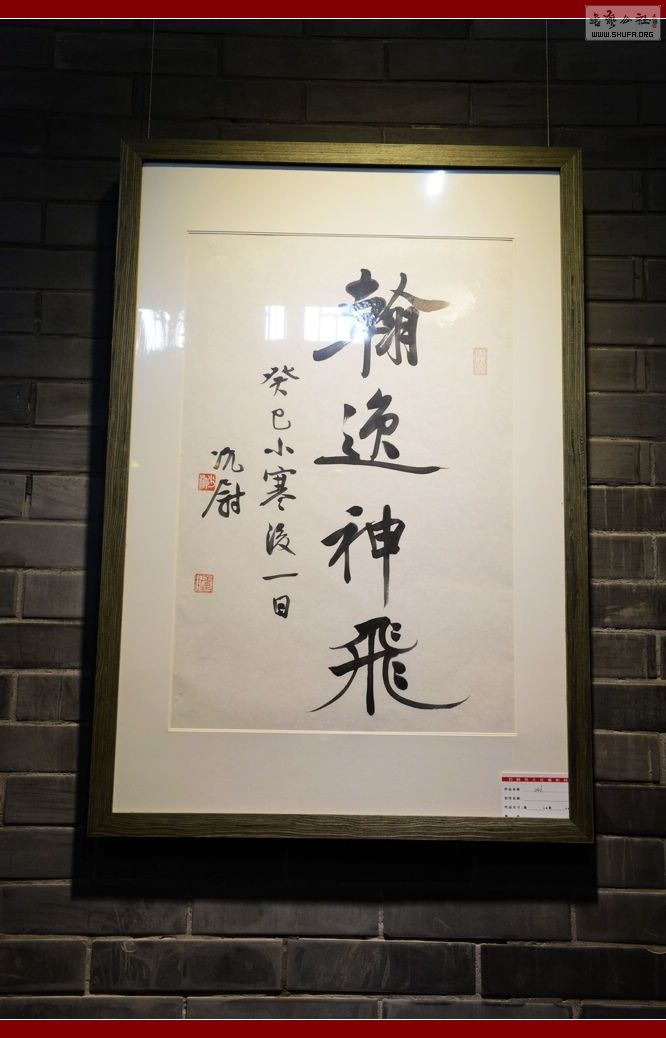 瀚逸神飛
癸巳小寒後一日
沈尉
书艺公社
WWW.SHUFA.ORG